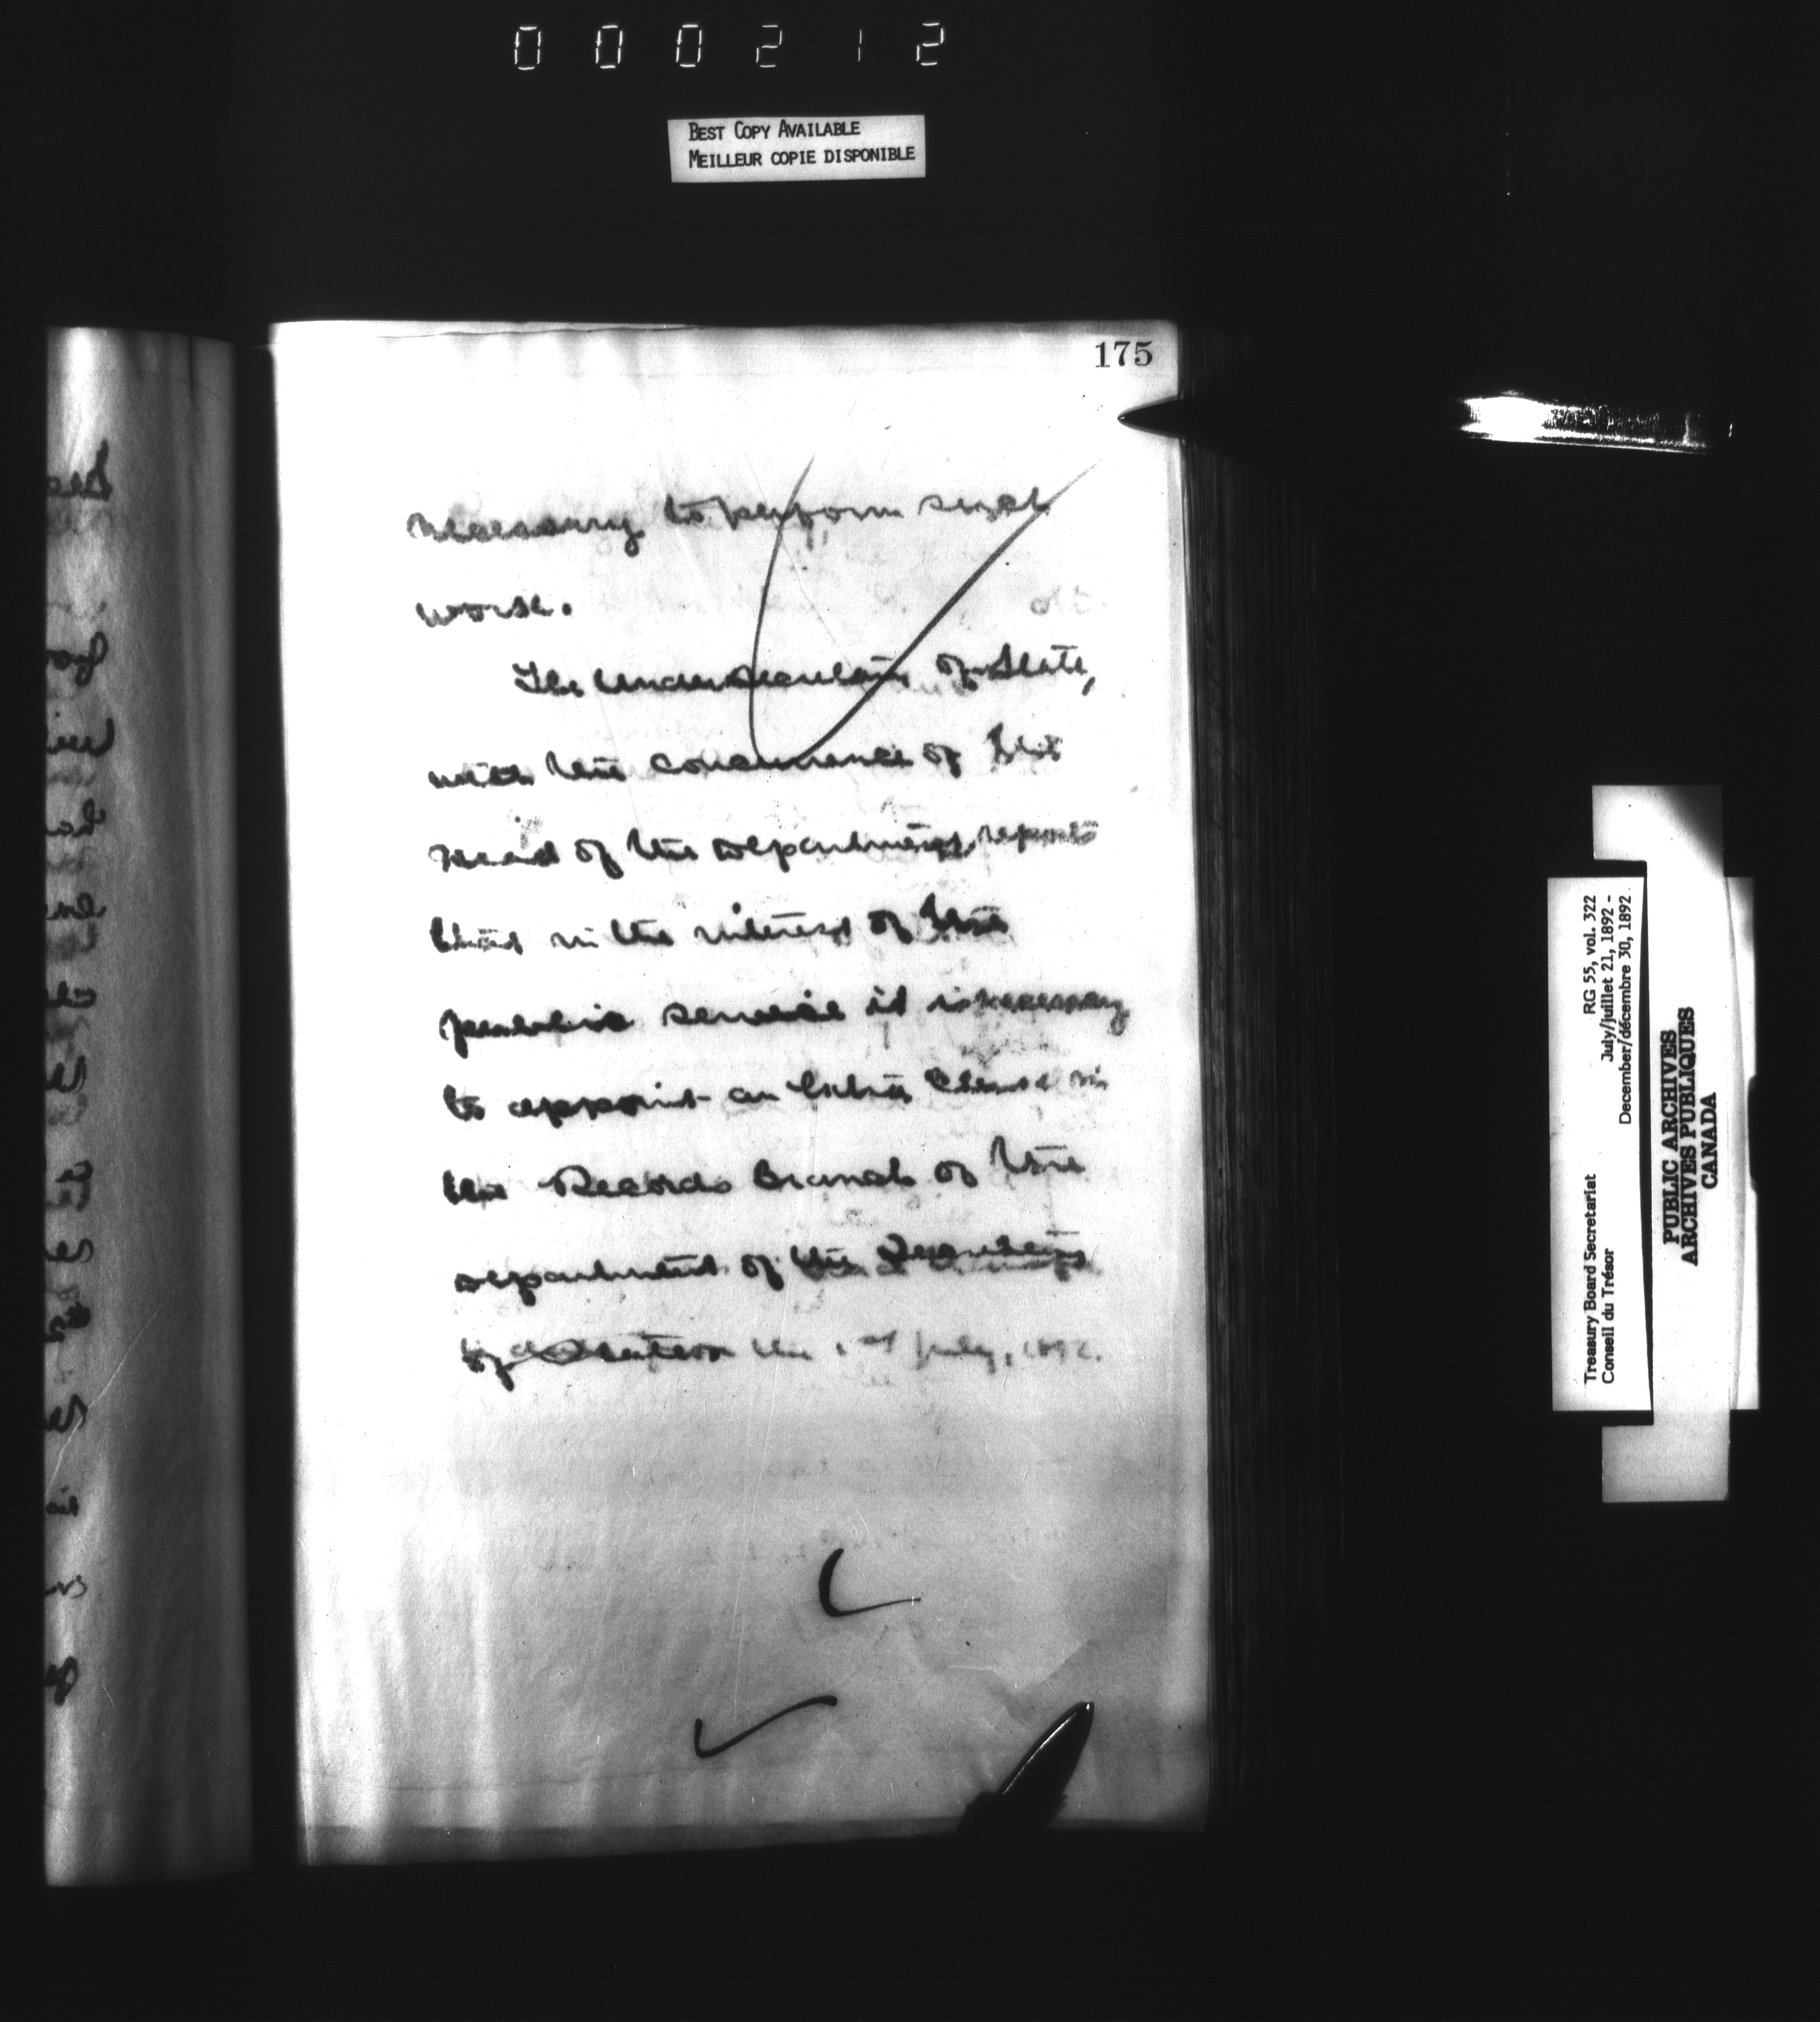 000212
BEST COPY AVAILABLE
MEILLEUR COPIE DISPONIBLE
175
necessary to perform such
work.
The Under Secretary of State,
with the concurrence of the
Head of the Department, reports
that in the interest of the
public service it is necessary
to appoint an Extra Clerk in
the Records Branch of the
Department of the Secretary
of State on the 1st July, 1892.
Treasury Board Secretariat RG 55, vol. 322
Conseil du Trésor July/juillet 21, 1892 -
December/décembre 30, 1892
PUBLIC ARCHIVES
ARCHIVES PUBLIQUES
CANADA